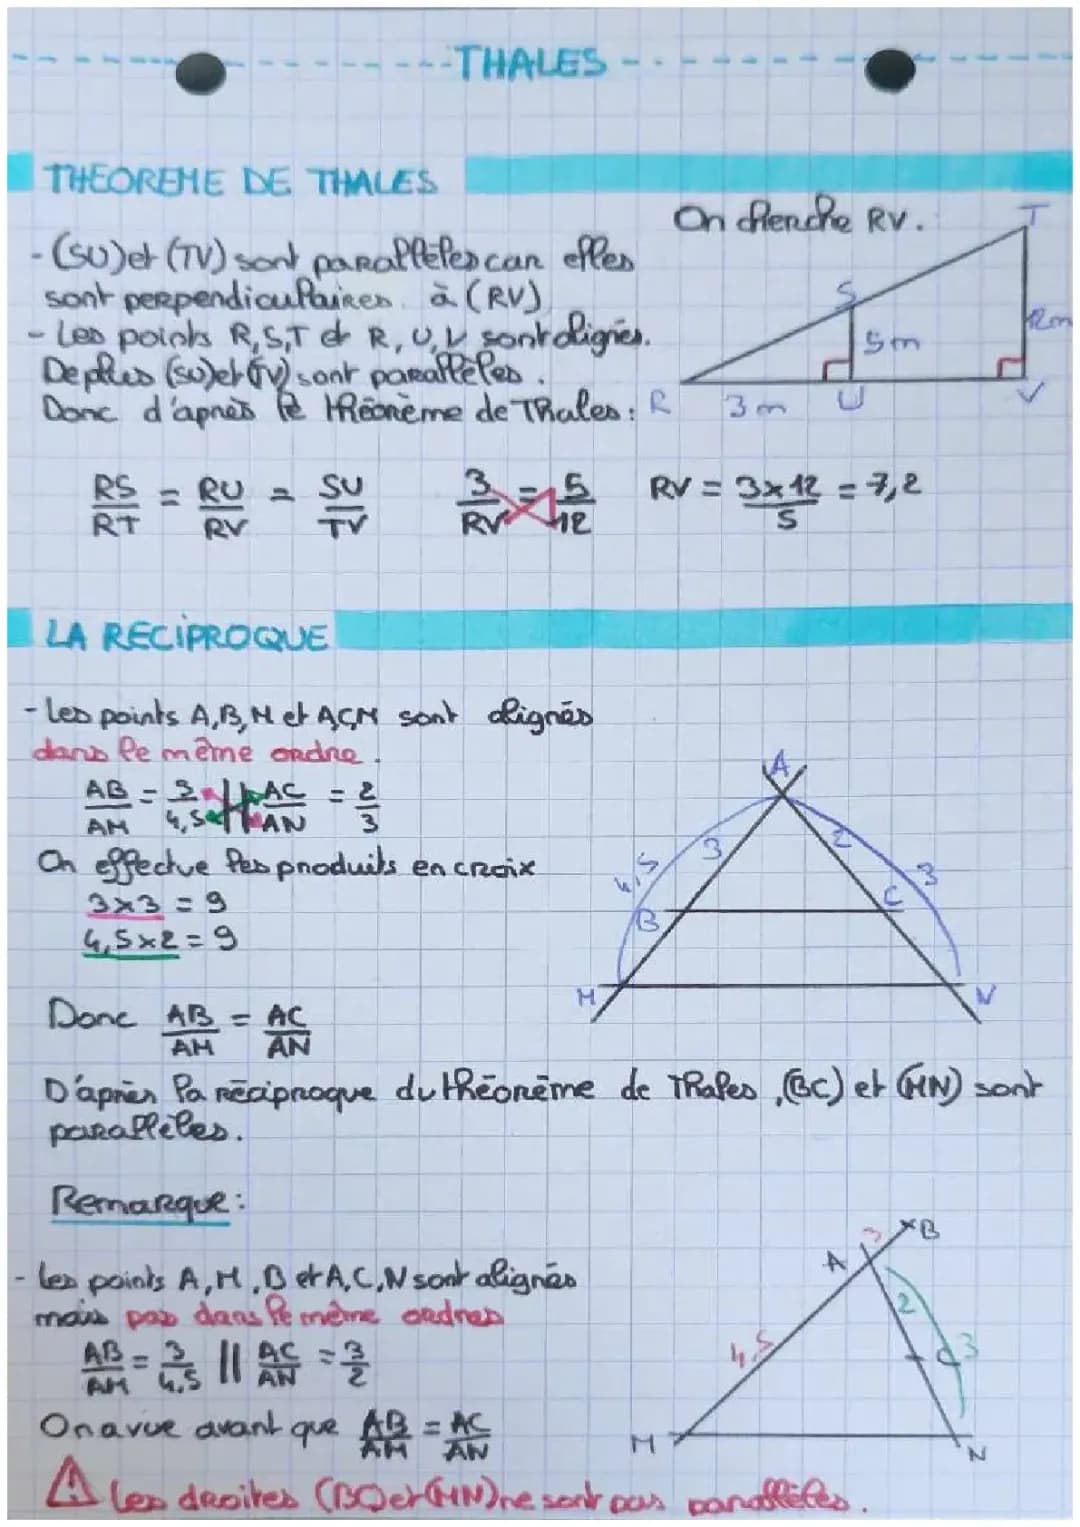 THALES
THEOREME DE THALES
On cherche RV.
- (SU) et (TV) sont parallèles car elles
sont perpendiculaires à (RV)
- Les points R,S,T et R,U,V sont alignés.
De plus (SU) et (TV) sont parallèles.
Donc d'après le théorème de Thales :
T
S
12m
5m
R
3 m
U
V
RS/RT = RU/RV = SU/TV   3/RV = 5/12   RV = 3x12/5 = 7,2
LA RECIPROQUE
- Les points A,B,M et A,C,M sont alignés
dans le même ordre.
AB/AM = 3/4,5 || AC/AN = 2/3
On effectue les produits en croix
3x3 = 9
4,5x2 = 9
A
4,5
3
2
3
B
C
M
N
Donc AB/AM = AC/AN
D'après la réciproque du théorème de Thales, (BC) et (MN) sont
parallèles.
Remarque :
- les points A,M,B et A,C,N sont alignés
mais pas dans le même ordres
AB/AM = 3/4,5 || AC/AN = 3/2
On a vue avant que AB/AM = AC/AN
3
B
A
2
4,5
C
3
M
N
! Les droites (BC) et (MN) ne sont pas parallèles.